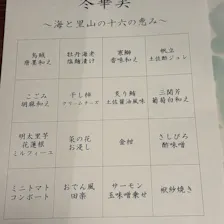 冬華美
～海と里山の十六の恵み～
烏賊
唐墨和え
牡丹海老
塩麹漬け
寒鰤
香味和え
帆立
土佐酢ジュレ
こごみ
胡麻和え
干し柿
クリームチーズ
炙り鯖
土佐醤油風味
三関片
葡萄白和え
明太里芋
花蓮根
ミルフィーユ
菜の花
お浸し
金柑
さしびろ
酢味噌
ミニトマト
コンポート
おでん風
田楽
サーモン
玉味噌乗せ
袱紗焼き